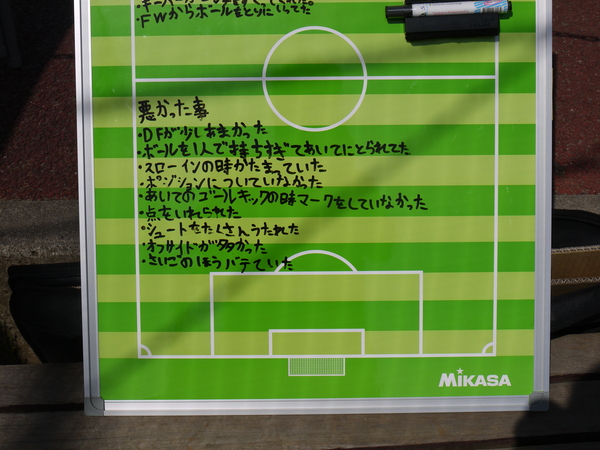 ・FWからボールをとりにいってた。
悪かった事
・DFが少しあまかった
・ボールを1人で持ちすぎてあいてにとられてた
・スローインの時かたまっていた
・ポジションについていなかった
・あいてのゴールキックの時マークをしていなかった
・点をいれられた
・シュートをたくさんうたれた
・オフサイドが多かった
・さいごのほうバテていた
MIKASA